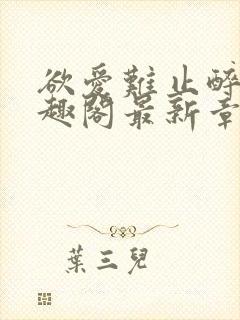 欲爱難止醉
趣閣最新章
葉三兒